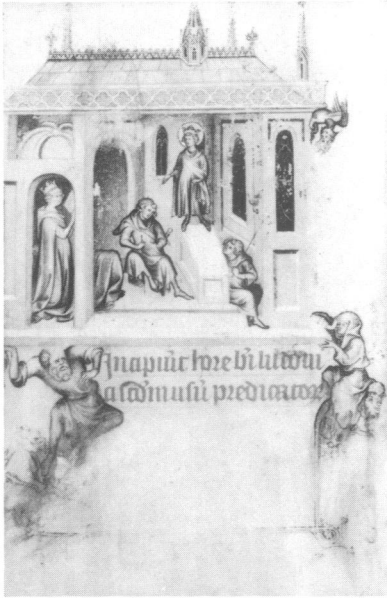 Incipiūt hore bī ludoui
ci scdm usū predicator